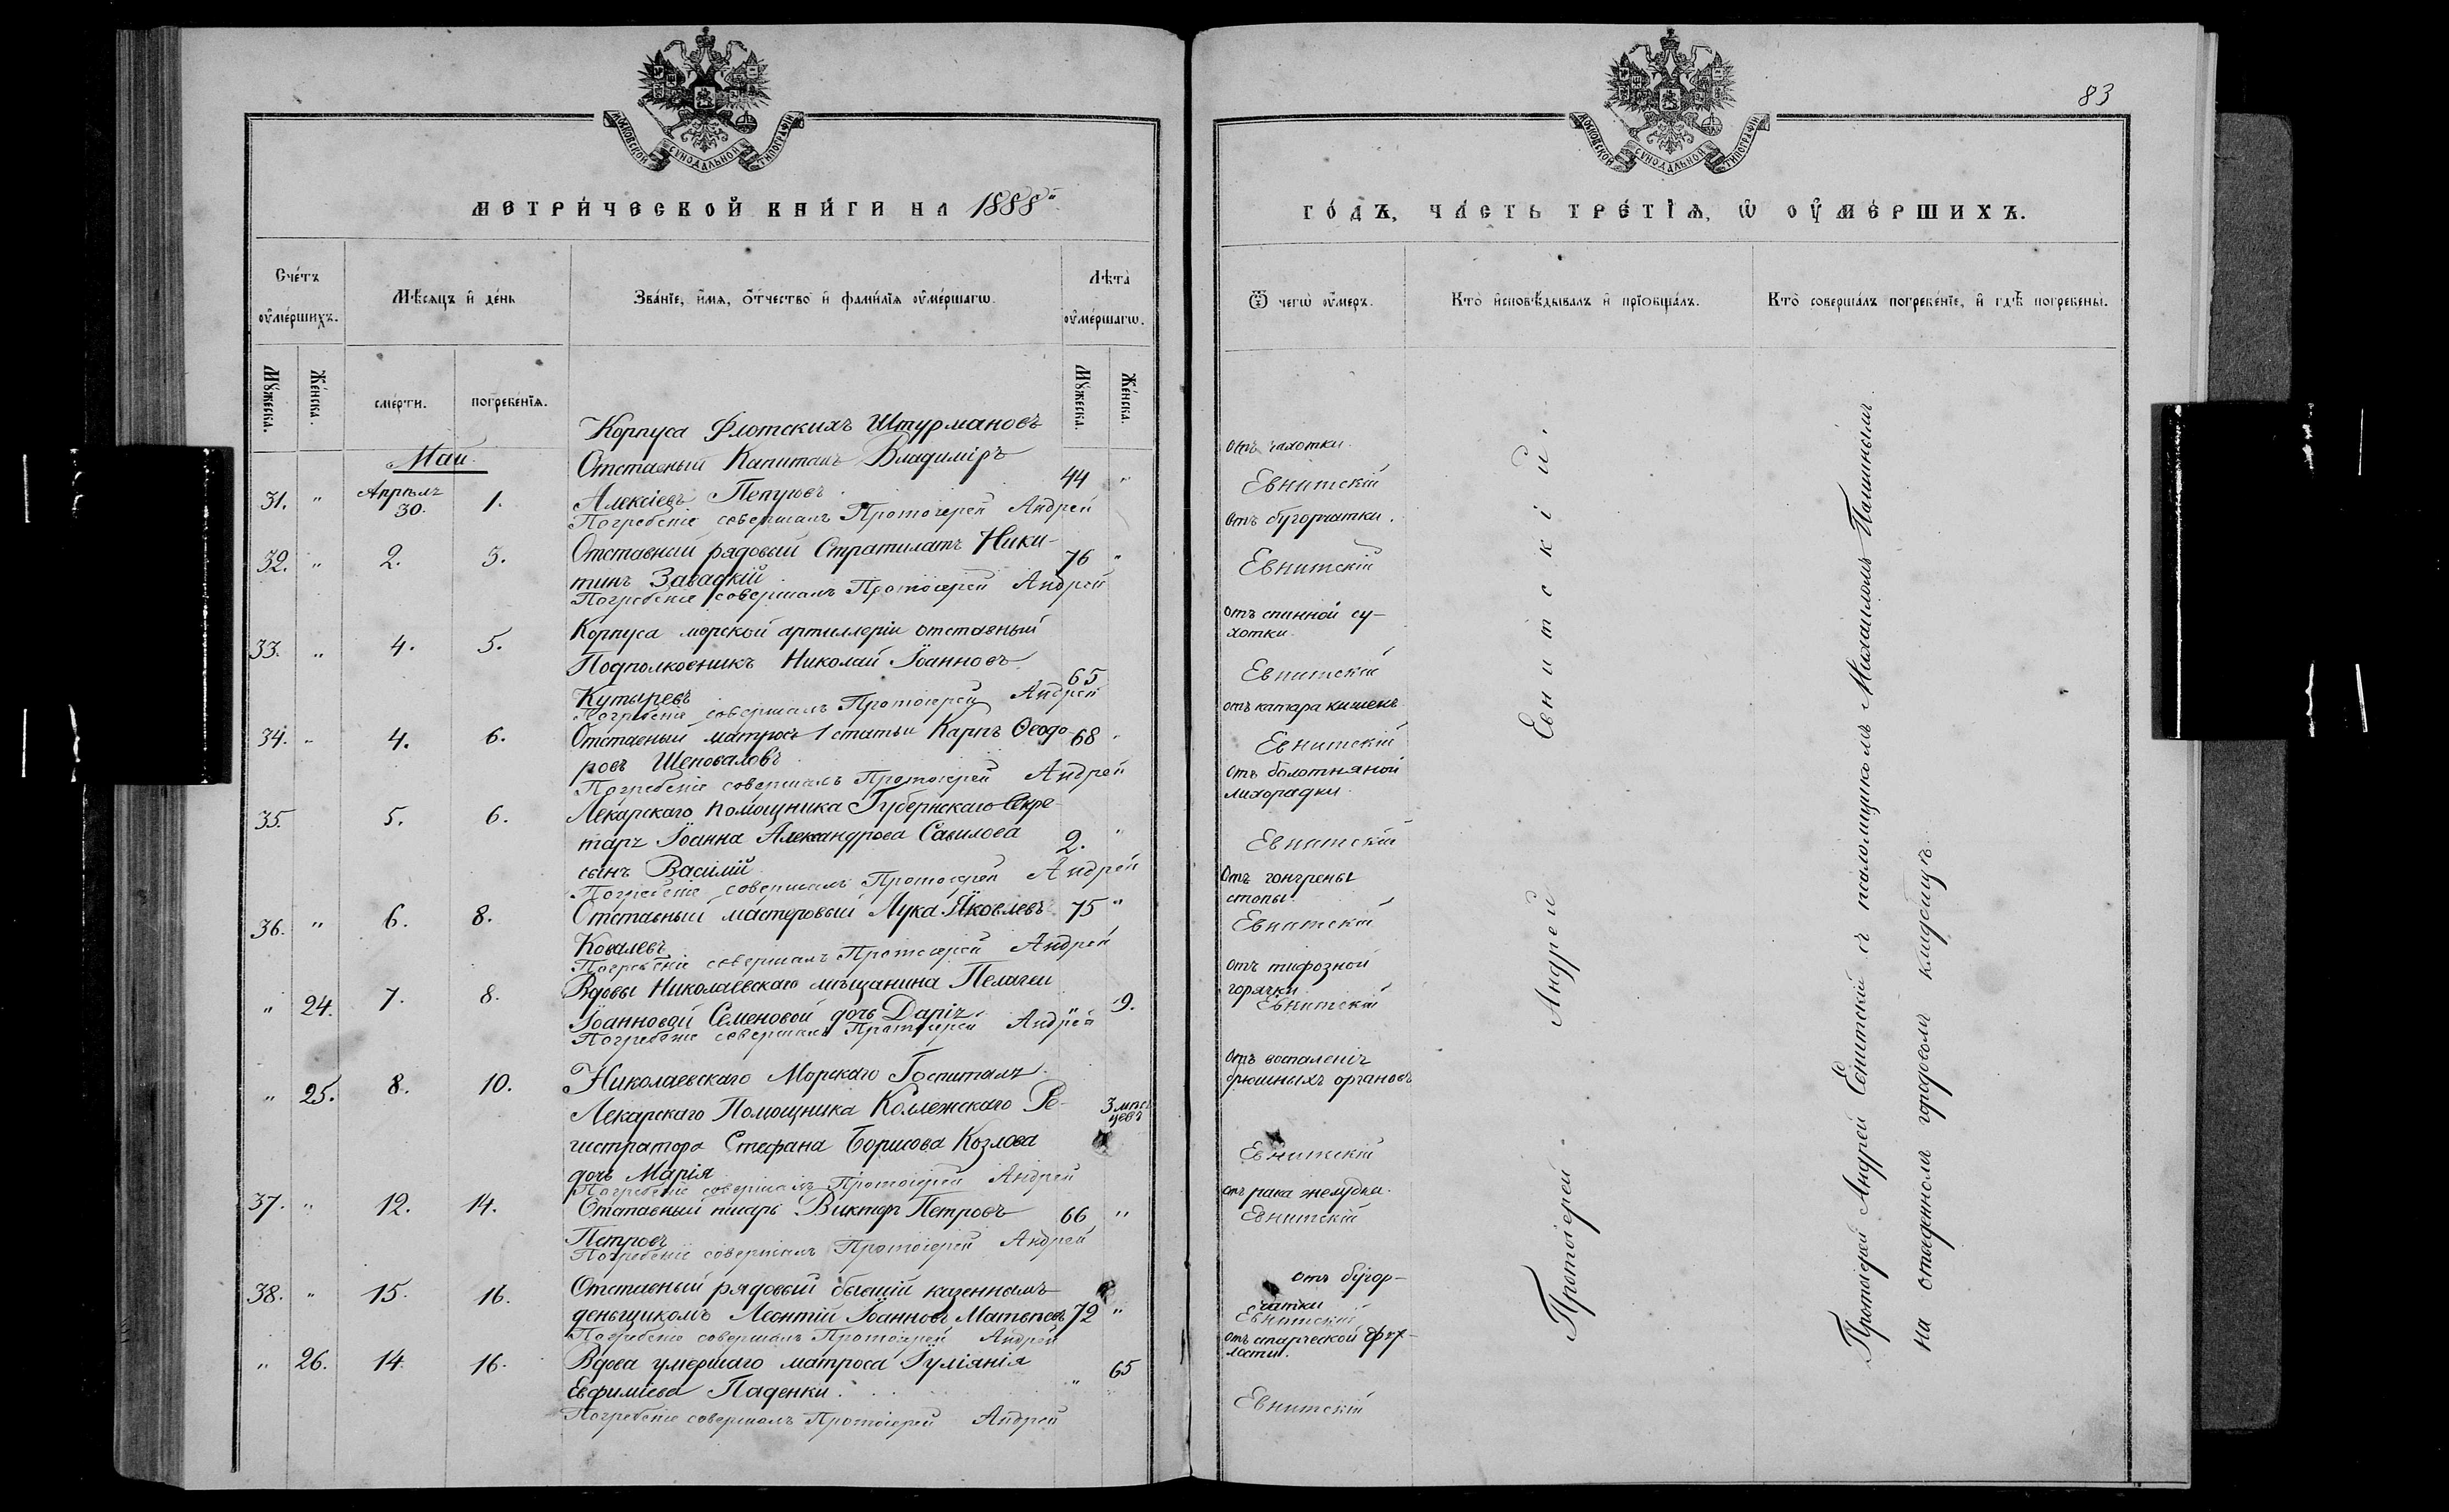 МОСКОВСКОЙ СѴНОДАЛЬНОЙ ТИПОГРАФІИ
МЕТРИ́ЧЕСКОЙ КНИ́ГИ НА 1888й
Сче́тъ ᲂу҆ме́ршихъ.
Мѣ́сяцъ и҆ де́нь
Зва́нїе, и҆́мѧ, ѻ҆́тчество и҆ фами́лїѧ ᲂу҆ме́ршагѡ.
Лѣта̀ ᲂу҆ме́ршагѡ.
Мꙋ́жеска.
Же́нска.
сме́рти.
погребе́нїѧ.
Мꙋ́жеска.
Же́нска.
Май.
Корпуса Флотскихъ Штурмановъ
Отставный Капитанъ Владиміръ
31. " Апрѣль 30. 1. Алексіевъ 44 "
Погребеніе совершалъ Протоіерей Андрей
32. " 2. 3. Отставный рядовый Стратилатъ Ники-
тинъ Завадкій 76 "
Погребеніе совершалъ Протоіерей Андрей
33. " 4. 5. Корпуса морской артиллеріи отставный
Подполковникъ Николай Іоанновъ
Кутыревъ 65
Погребеніе совершалъ Протоіерей Андрей
34. " 4. 6. Отставный матросъ 1 статьи Карпъ Ѳеодо- 68 "
ровъ Шеповаловъ
Погребеніе совершалъ Протоіерей Андрей
35. 5. 6. Лекарскаго помощника Губернскаго Секре-
таря Іоанна Александрова Савилова 2. "
сынъ Василій
Погребеніе совершалъ Протоіерей Андрей
36. " 6. 8. Отставный мастеровый Лука Яковлевъ 75 "
Ковалевъ
Погребеніе совершалъ Протоіерей Андрей
" 24. 7. 8. Вдовы Николаевскаго мѣщанина Пелагеи
Іоанновой Семеновой дочь Дарія 9.
Погребеніе совершалъ Протоіерей Андрей
" 25. 8. 10. Николаевскаго Морскаго Госпиталя
Лекарскаго Помощника Коллежскаго Ре- 3 мѣся
гистратора Стефана Борисова Козлова цевъ
дочь Марія
Погребеніе совершалъ Протоіерей Андрей
37. " 12. 14. Отставный писарь Викторъ Петровъ 66 "
Петровъ
Погребеніе совершалъ Протоіерей Андрей
38. " 15. 16. Отставный рядовый бывшій казеннымъ
деньщикомъ Леонтій Іоанновъ Матвѣевъ 72 "
Погребеніе совершалъ Протоіерей Андрей
" 26. 14 16. Вдова умершаго матроса Іуліанія
Евфиміева Паденки. " 65
Погребеніе совершалъ Протоіерей Андрей
83
МОСКОВСКОЙ СѴНОДАЛЬНОЙ ТИПОГРАФІИ
ГО́ДЪ, ЧА́СТЬ ТРЕ́ТЇѦ, Ѡ҆ ОУ҆МЕ́РШИХЪ.
Ѿ чегѡ̀ ᲂу҆́меръ.
Кто̀ и҆сповѣ́дывалъ и҆ прїѡбща́лъ.
Кто̀ соверша́лъ погребе́нїе, и҆ гдѣ̀ погребены̀.
отъ чахотки.
Евнитскій
отъ бугорчатки.
Евнитскій
отъ спинной су-
хотки.
Евнитскій
отъ катара кишекъ
Евнитскій
отъ болотняной
лихорадки.
Евнитскій
отъ гонгрены
стопы.
Евнитскій
отъ тифозной
горячки
Евнитскій
отъ воспаленія
брюшныхъ органовъ
Евнитскій
отъ рака желудка.
Евнитскій
отъ бугор-
чатки
Евнитскій
отъ старческой дрях-
лости.
Евнитскій
Протоіерей Андрей Евнитскій.
Протоіерей Андрей Евнитскій съ псаломщикомъ Михаиломъ
на отведенномъ городовомъ кладбищѣ.